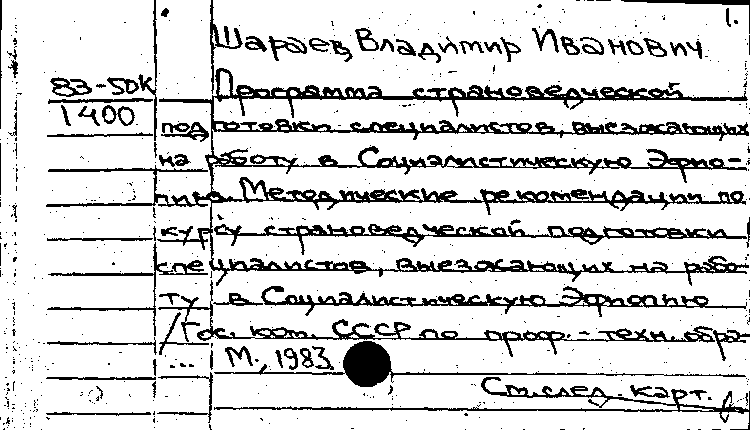 1.
Шараев Владимир Иванович
83-50К Программа страноведческой
1400 подготовки специалистов, выезжающих
на работу в Социалистическую Эфио-
пию. Методические рекомендации по
курсу страноведческой подготовки
специалистов, выезжающих на рабо-
ту в Социалистическую Эфиопию
/Гос. ком. СССР по проф.-техн. обра-
... М., 1983
См. след. карт.